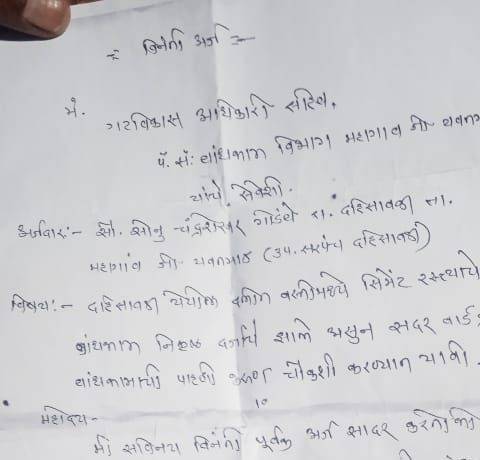 -: विनंती अर्ज :-
मे.
गटविकास अधिकारी साहेब,
पं. सं. बांधकाम विभाग महागाव जी यवत
यांचे सेवेशी.
अर्जदार:- सौ. सोनु चंद्रशेखर रा. दहिसावळी ता.
महागांव जी. यवतमाळ (उप. सरपंच दहिसावळी)
विषय:- दहिसावळी येथील दलीत वस्तीमध्ये सिमेंट रस्त्याचे
बांधकाम निकृष्ट दर्जाचे झाले असुन सदर
बांधकामाची पाहणी करुण चौकशी करण्यात यावी.
महोदय-
मी सविनय विनंती पूर्वक अर्ज सादर करतो की